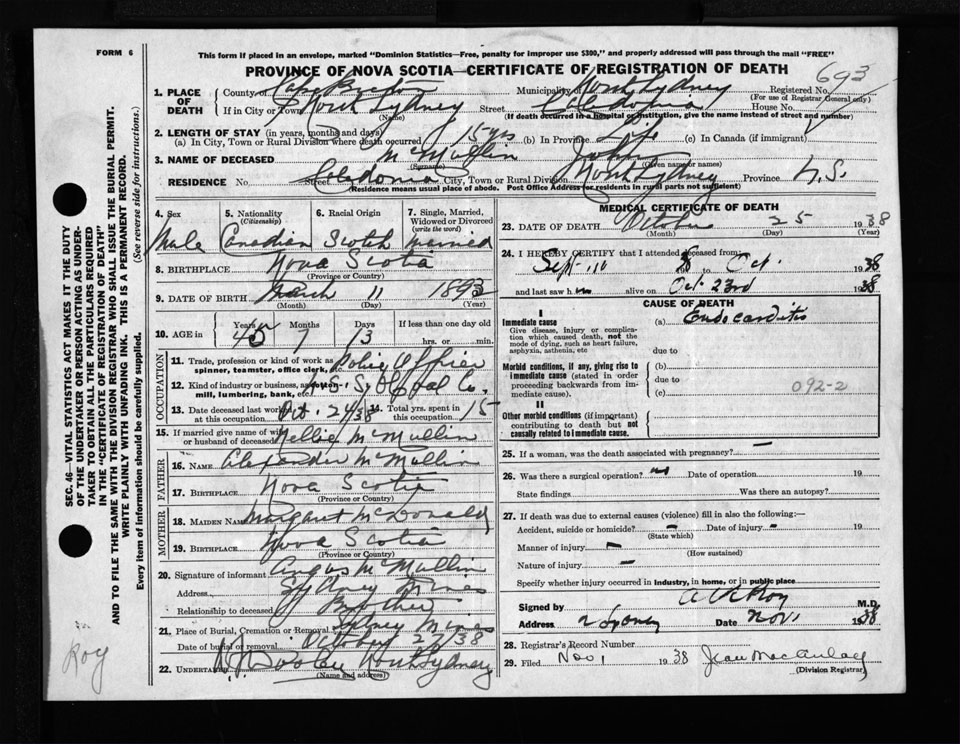 FORM 6
This form if placed in an envelope, marked "Dominion Statistics—Free, penalty for improper use $300," and properly addressed will pass through the mail "FREE"
PROVINCE OF NOVA SCOTIA—CERTIFICATE OF REGISTRATION OF DEATH
693
1. PLACE OF DEATH County of Cape Breton Municipality of North Sydney Registered No.
(For use of Registrar General only)
If in City or Town North Sydney Street Caledonia House No.
(Name) (If death occurred in a hospital or institution, give the name instead of street and number)
2. LENGTH OF STAY (in years, months and days)
(a) In City, Town or Rural Division where death occurred 15 yrs (b) In Province Life (c) In Canada (if immigrant)
3. NAME OF DECEASED McMullin John
(Surname) (Given name or names)
RESIDENCE No. Street Caledonia City, Town or Rural Division North Sydney Province N.S.
(Residence means usual place of abode. Post Office Address for residents in rural parts not sufficient)
4. Sex 5. Nationality (Citizenship) 6. Racial Origin 7. Single, Married, Widowed or Divorced (write the word)
Male Canadian Scotch Married
8. BIRTHPLACE Nova Scotia
(Province or Country)
9. DATE OF BIRTH March 11 1893
(Month) (Day) (Year)
10. AGE in Years Months Days If less than one day old
7 13 hrs. or min.
11. Trade, profession or kind of work as spinner, teamster, office clerk, Police Officer
12. Kind of industry or business, as cotton-mill, lumbering, bank, etc. N.S. S & Coal Co.
13. Date deceased last worked at this occupation Oct. 24/38 Total yrs. spent in this occupation 15
OCCUPATION
15. If married give name of wife or husband of deceased Nellie McMullin
FATHER
16. NAME Alexander McMullin
17. BIRTHPLACE Nova Scotia
(Province or Country)
MOTHER
18. MAIDEN NAME Margaret McDonald
19. BIRTHPLACE Nova Scotia
(Province or Country)
20. Signature of informant Angus McMullin
Address Sydney Mines
Relationship to deceased Brother
21. Place of Burial, Cremation or Removal Sydney Mines
Date of burial or removal October 27/38
22. UNDERTAKER Dooley North Sydney
(Name and address)
MEDICAL CERTIFICATE OF DEATH
23. DATE OF DEATH October 25 1938
(Month) (Day) (Year)
24. I HEREBY CERTIFY that I attended deceased from:
Sept. 19 to Oct. 1938
and last saw h alive on Oct 23rd 1938
CAUSE OF DEATH
I
Immediate cause (a) Endocarditis
Give disease, injury or complication which caused death, not the mode of dying, such as heart failure, asphyxia, asthenia, etc
due to
Morbid conditions, if any, giving rise to immediate cause (stated in order proceeding backwards from immediate cause). (b)
due to
(c) 092-2
II
Other morbid conditions (if important) contributing to death but not causally related to immediate cause.
25. If a woman, was the death associated with pregnancy? —
26. Was there a surgical operation? no Date of operation 19
State findings Was there an autopsy?
27. If death was due to external causes (violence) fill in also the following:—
Accident, suicide or homicide? — Date of injury — 19
(State which)
Manner of injury —
(How sustained)
Nature of injury —
Specify whether injury occurred in industry, in home, or in public place
Signed by M.D.
Address N Sydney Date Nov 1 1938
28. Registrar's Record Number
29. Filed Nov 1 1938 Jean MacAulay
(Division Registrar)
SEC. 46—VITAL STATISTICS ACT MAKES IT THE DUTY OF THE UNDERTAKER OR PERSON ACTING AS UNDERTAKER TO OBTAIN ALL THE PARTICULARS REQUIRED IN THE "CERTIFICATE OF REGISTRATION OF DEATH"
AND TO FILE THE SAME WITH THE DIVISION REGISTRAR WHO SHALL ISSUE THE BURIAL PERMIT.
WRITE PLAINLY WITH UNFADING INK. THIS IS A PERMANENT RECORD.
Every item of information should be carefully supplied. (See reverse side for instructions.)
Roy